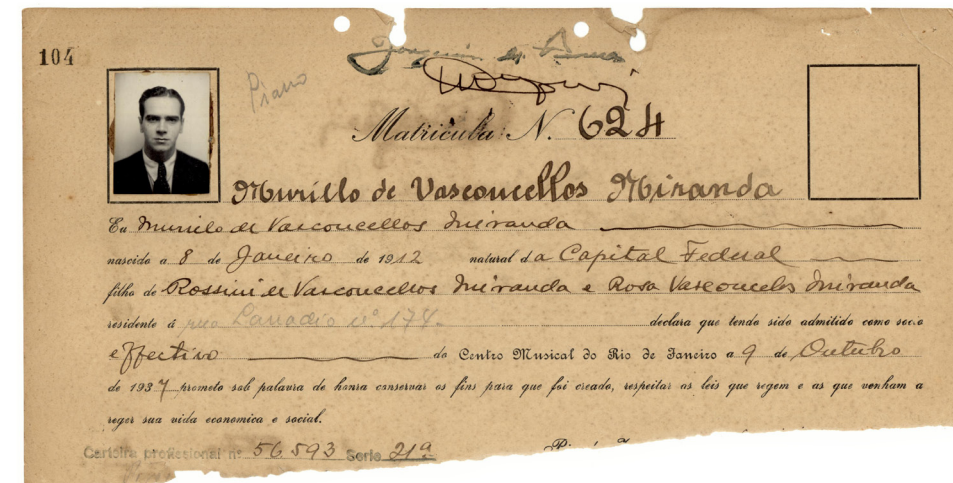 104
Piano
Matricula N. 624
Murillo de Vasconcellos Miranda
Eu Murilo de Vasconcellos Miranda
nascido a 8 de Janeiro de 1912 natural da Capital Federal
filho de Rossini de Vasconcellos Miranda e Rosa Vasconcelos Miranda
residente á rua nº 174. declara que tendo sido admitido como socio
effectivo do Centro Musical do Rio de Janeiro a 9 de Outubro
de 1937 prometo sob palavra de honra conservar os fins para que foi creado, respeitar as leis que regem e as que venham a
reger sua vida economica e social.
Carteira profissional nº 56.593 Serie 21ª